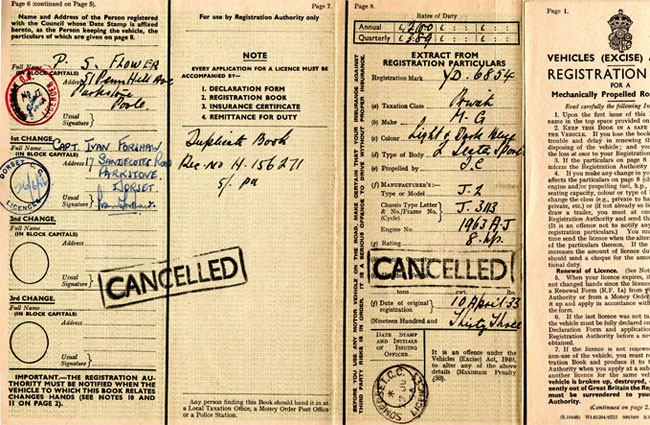 Page 6 (continued on Page 5).
Name and Address of the Person registered
with the Council whose Date Stamp is affixed
hereto, as the Person keeping the vehicle, the
particulars of which are given on page 8.
Full Name P. S. FLOWER
(IN BLOCK CAPITALS)
Address
Parkstone
Poole
Usual
Signature
1st CHANGE.
Full Name CAPT. IVAN FORSHAW
(IN BLOCK CAPITALS)
Address 17 SANDECOTES ROAD
PARKSTONE
DORSET
Usual
Signature
DORSET
LICENCES
2nd CHANGE.
Full Name
(IN BLOCK CAPITALS)
Address
Usual
Signature
3rd CHANGE.
Full Name
(IN BLOCK CAPITALS)
Address
Usual
Signature
IMPORTANT—THE REGISTRATION AU-
THORITY MUST BE NOTIFIED WHEN THE
VEHICLE TO WHICH THIS BOOK RELATES
CHANGES HANDS (SEE NOTES 10 AND
11 ON PAGE 2).
CANCELLED
Page 7.
For use by Registration Authority only
NOTE
EVERY APPLICATION FOR A LICENCE MUST BE
ACCOMPANIED BY—
1. DECLARATION FORM
2. REGISTRATION BOOK
3. INSURANCE CERTIFICATE
4. REMITTANCE FOR DUTY
Duplicate Book
Rec. No H. 156271
5/. pd
Any person finding this Book should hand it in at
a Local Taxation Office, a Money Order Post Office
or a Police Station.
BEFORE YOU USE ANY MOTOR VEHICLE ON THE ROAD, MAKE CERTAIN THAT YOUR INSURANCE AGAINST
THIRD PARTY RISKS IS IN ORDER. IT IS A SERIOUS OFFENCE TO DRIVE WITHOUT PROPER INSURANCE.
Page 8.
Rates of Duty
Annual
Quarterly
EXTRACT FROM
REGISTRATION PARTICULARS
Registration Mark YD 6854
(a) Taxation Class Private
(b) Make M-G
(c) Colour Light & Dark Blue
(d) Type of Body 2 Seater Sports
(e) Propelled by I.C
(f) MANUFACTURER'S:—
Type or Model J.2
Chassis Type Letter
& No./Frame No. J. 3113
(Cycle).
Engine No. 1963 A J
(g) Rating 8. hp.
CANCELLED
tons cwt. lbs.
(j) Date of original
registration 10 April 33
(Nineteen Hundred and Thirty Three
DATE STAMP
AND INITIALS
OF ISSUING
OFFICER.
It is an offence under the
Vehicles (Excise) Act, 1949,
to alter any of the above
details (Maximum Penalty
£50).
SOMERSET C.C.
Page 1.
VEHICLES (EXCISE) A
REGISTRATION
FOR A
Mechanically Propelled Ro
Read carefully the following In
1. Upon the first issue of this
name in the top space provided on
2. KEEP THIS BOOK IN A SAFE
THE VEHICLE. If you lose the book
trouble and delay in renewing t
disposing of the vehicle; and you
the loss at once to your Registration
3. If the particulars on page 8
the Registration Authority
4. If you make any change in you
affects the particulars on page 8 (
engine and/or propelling fuel, h.p.,
seating capacity, color or type of b
change the class (e.g., private to ha
private, etc.) or (if not already so lic
draw a trailer, you must at once
Registration Authority and send th
(It is an offence not to notify any
registration particulars.) You mu
time send the licence when the alter
of the particulars thereon. If the
increases the amount of licence dut
should send a cheque for the amount
tional duty.
Renewal of Licence. (See Not
5. When your licence expires, if
not changed hands since the licence
a Renewal Form (R.F. 1a) from
Authority or from a Money Order
it up and apply in accordance with
the form.
6. If the last licence was not ta
the vehicle must be fully declared on
Declaration Form and application
Registration Authority before a re
obtained.
7. If the licence is not renewe
non-use of the vehicle, you must r
tration Book and produce it to t
Authority when you apply at a sub
another licence for the same vehi
vehicle is broken up, destroyed,
nently out of Great Britain the Reg
must be surrendered to your
Authority.
(Continued on page 2.